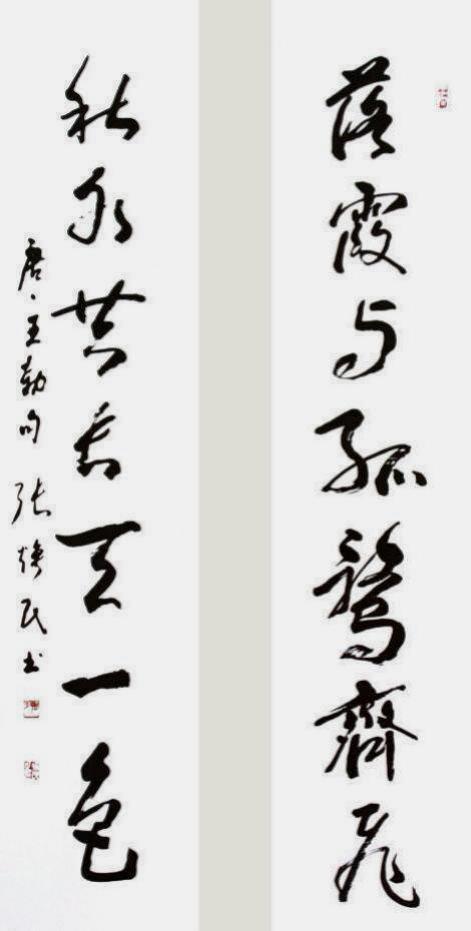 落霞与孤鹜齊飛
秋水共长天一色
唐·王勃句 张焕民书